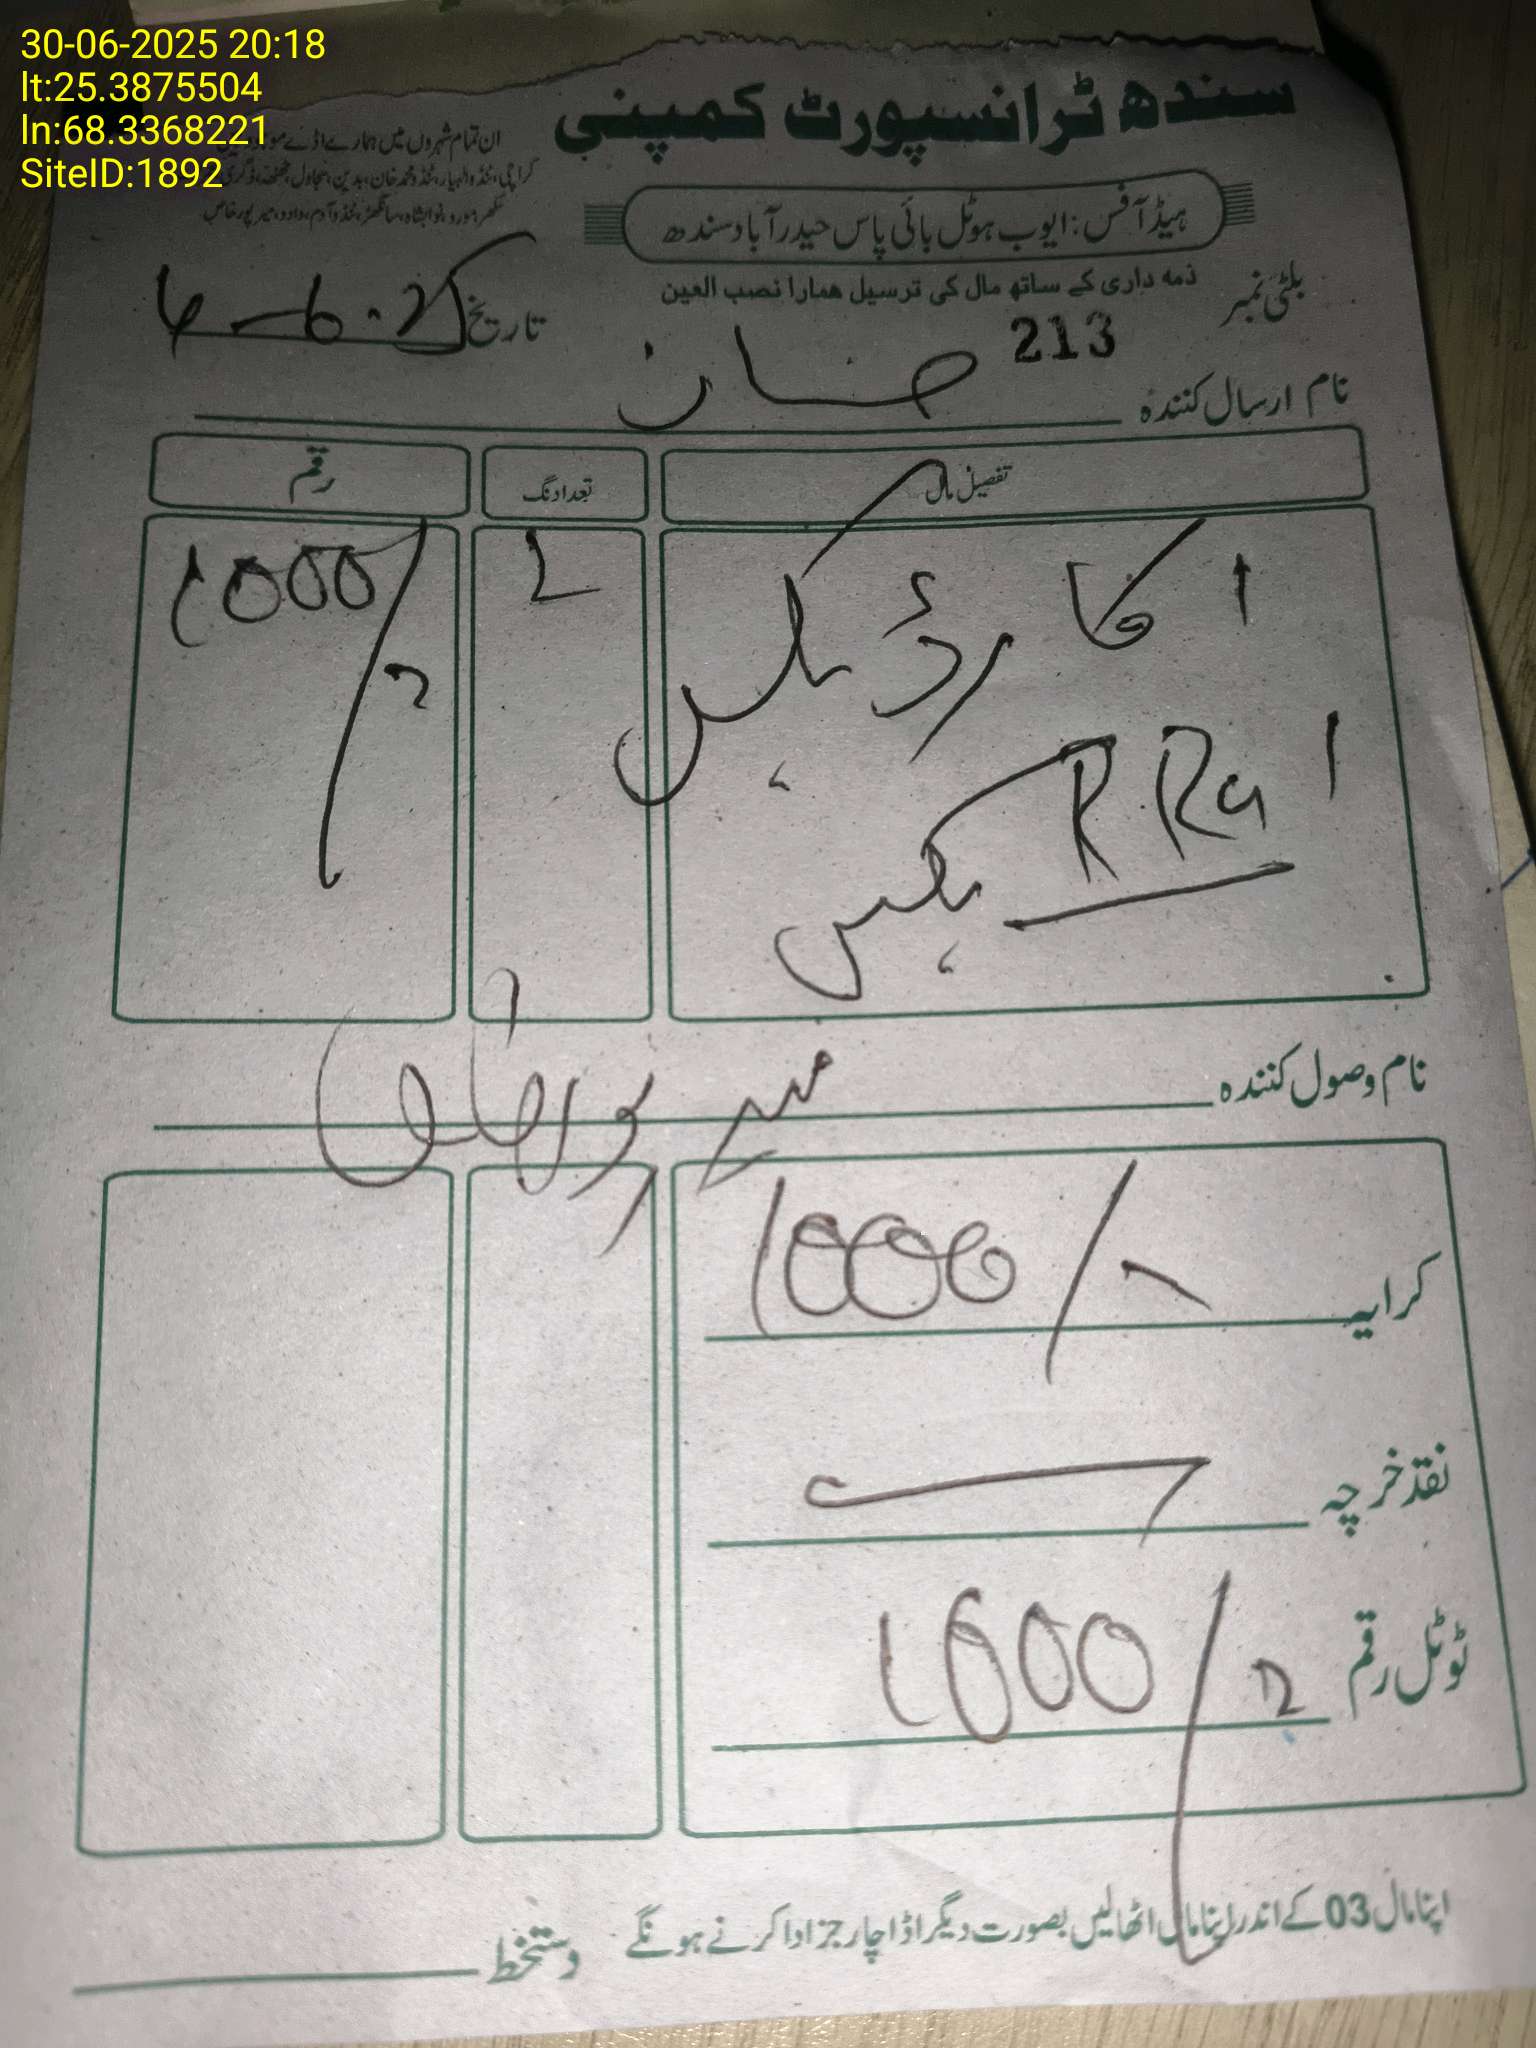 30-06-2025 20:18
lt:25.3875504
ln:68.3368221
SiteID:1892
سندھ ٹرانسپورٹ کمپنی
ان تمام شہروں میں ہمارے اڈے
کراچی، ٹنڈوالہیار، ٹنڈومحمدخان، بدین، سجاول، ٹھٹھہ، ڈگری
سکھر، مورو، نوابشاہ، سانگھڑ، ٹنڈوآدم، دادو، میرپورخاص
ہیڈ آفس: ایوب ہوٹل بائی پاس حیدرآباد سندھ
ذمہ داری کے ساتھ مال کی ترسیل ہمارا نصب العین
بلٹی نمبر 213
تاریخ
نام ارسال کنندہ حسان
تفصیل مال تعداد نگ رقم
1 گارڈ بکس 2 1000/
1 RRU بکس
نام وصول کنندہ میرپورخاص
کرایہ 1000/-
نقد خرچہ
ٹوٹل رقم 1000/
اپنا مال 03 کے اندر اپنا مال اٹھالیں بصورت دیگر اڈا چارجز ادا کرنے ہونگے دستخط